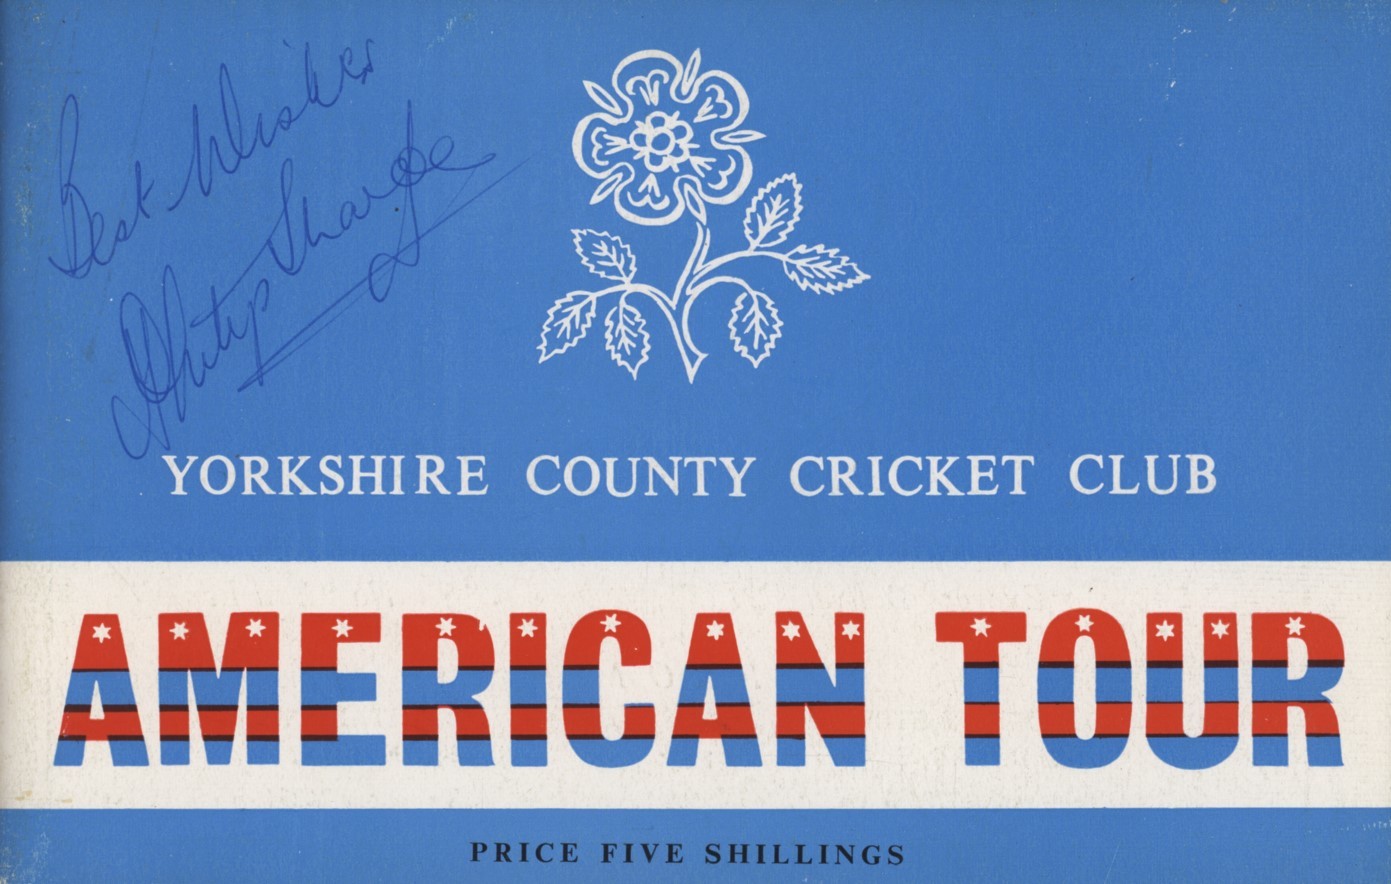 Best Wishes
Philip Sharpe
YORKSHIRE COUNTY CRICKET CLUB
AMERICAN TOUR
PRICE FIVE SHILLINGS